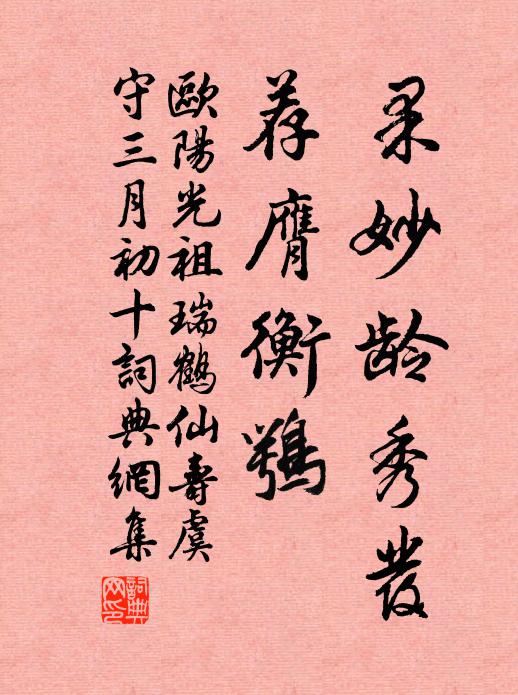 果妙龄秀發
荐膺衡鶚
歐陽光祖瑞鶴仙壽虞
守三月初十詞典網集
詞典网印